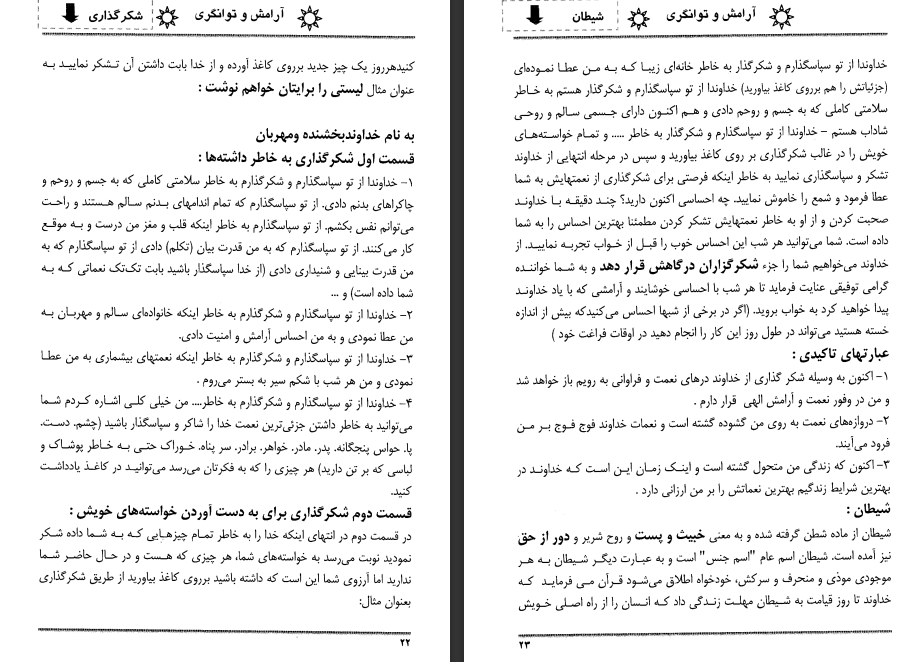 آرامش و توانگری
شکرگذاری
کنیدهرروز یک چیز جدید برروی کاغذ آورده و از خدا بابت داشتن آن تشکر نمایید به
عنوان مثال لیستی را برایتان خواهم نوشت :
به نام خداوندبخشنده ومهربان
قسمت اول شکرگذاری به خاطر داشته‌ها :
۱- خداوندا از تو سپاسگذارم و شکرگذارم به خاطر سلامتی کاملی که به جسم و روحم و
چاکراهای بدنم دادی. از تو سپاسگذارم که تمام اندامهای بدنم سالم هستند و راحت
می‌توانم نفس بکشم. از تو سپاسگذارم به خاطر اینکه قلب و مغز من درست و به موقع
کار می‌کنند. از تو سپاسگذارم که به من قدرت بیان (تکلم) دادی از تو سپاسگذارم که به
من قدرت بینایی و شنیداری دادی (از خدا سپاسگذار باشید بابت تک‌تک نعماتی که به
شما داده است) و ...
۲- خداوندا از تو سپاسگذارم و شکرگذارم به خاطر اینکه خانواده‌ای سالم و مهربان به
من عطا نمودی و به من احساس آرامش و امنیت دادی.
۳- خداوندا از تو سپاسگذارم و شکرگذارم به خاطر اینکه نعمتهای بیشماری به من عطا
نمودی و من هر شب با شکم سیر به بستر می‌روم .
۴- خداوندا از تو سپاسگذارم و شکرگذارم به خاطر.... من خیلی کلی اشاره کردم شما
می‌توانید به خاطر داشتن جزئی‌ترین نعمت خدا را شاکر و سپاسگذار باشید (چشم. دست.
پا. حواس پنجگانه. پدر. مادر. خواهر. برادر. سر پناه. خوراک حتی به خاطر پوشاک و
لباسی که بر تن دارید) هر چیزی را که به فکرتان می‌رسد می‌توانید در کاغذ یادداشت
کنید.
قسمت دوم شکرگذاری برای به دست آوردن خواسته‌های خویش :
در قسمت دوم در انتهای اینکه خدا را به خاطر تمام چیزهایی که به شما داده شکر
نمودید نوبت می‌رسد به خواسته‌های شما، هر چیزی که هست و در حال حاضر شما
ندارید اما آرزوی شما این است که داشته باشید برروی کاغذ بیاورید از طریق شکرگذاری
بعنوان مثال:
۲۲
آرامش و توانگری
شیطان
خداوندا از تو سپاسگذارم و شکرگذار به خاطر خانه‌ای زیبا که به من عطا نموده‌ای
(جزئیاتش را هم برروی کاغذ بیاورید) خداوندا از تو سپاسگذارم و شکرگذار هستم به خاطر
سلامتی کاملی که به جسم و روحم دادی و هم اکنون دارای جسمی سالم و روحی
شاداب هستم - خداوندا از تو سپاسگذارم و شکرگذار به خاطر ..... و تمام خواسته‌های
خویش را در غالب شکرگذاری بر روی کاغذ بیاورید و سپس در مرحله انتهایی از خداوند
تشکر و سپاسگذاری نمایید به خاطر اینکه فرصتی برای شکرگذاری از نعمتهایش به شما
عطا فرمود و شمع را خاموش نمایید. چه احساسی اکنون دارید؟ چند دقیقه با خداوند
صحبت کردن و از او به خاطر نعمتهایش تشکر کردن مطمئنا بهترین احساس را به شما
داده است. شما می‌توانید هر شب این احساس خوب را قبل از خواب تجربه نمایید. از
خداوند می‌خواهیم شما را جزء شکرگزاران درگاهش قرار دهد و به شما خواننده
گرامی توفیقی عنایت فرماید تا هر شب با احساسی خوشایند و آرامشی که با یاد خداوند
پیدا خواهید کرد به خواب بروید. (اگر در برخی از شبها احساس می‌کنیدکه بیش از اندازه
خسته هستید می‌توانید در طول روز این کار را انجام دهید در اوقات فراغت خود )
عبارتهای تاکیدی :
۱- اکنون به وسیله شکر گذاری از خداوند درهای نعمت و فراوانی به رویم باز خواهد شد
و من در وفور نعمت و آرامش الهی قرار دارم .
۲- دروازه‌های نعمت به روی من گشوده گشته است و نعمات خداوند فوج فوج بر من
فرود می‌آیند.
۳- اکنون که زندگی من متحول گشته است و اینک زمان این است که خداوند در
بهترین شرایط زندگیم بهترین نعماتش را بر من ارزانی دارد .
شیطان :
شیطان از ماده شطن گرفته شده و به معنی خبیث و پست و روح شریر و دور از حق
نیز آمده است. شیطان اسم عام "اسم جنس" است و به عبارت دیگر شیطان به هر
موجودی موذی و منحرف و سرکش، خودخواه اطلاق می‌شود قرآن می فرماید که
خداوند تا روز قیامت به شیطان مهلت زندگی داد که انسان را از راه اصلی خویش
۲۳